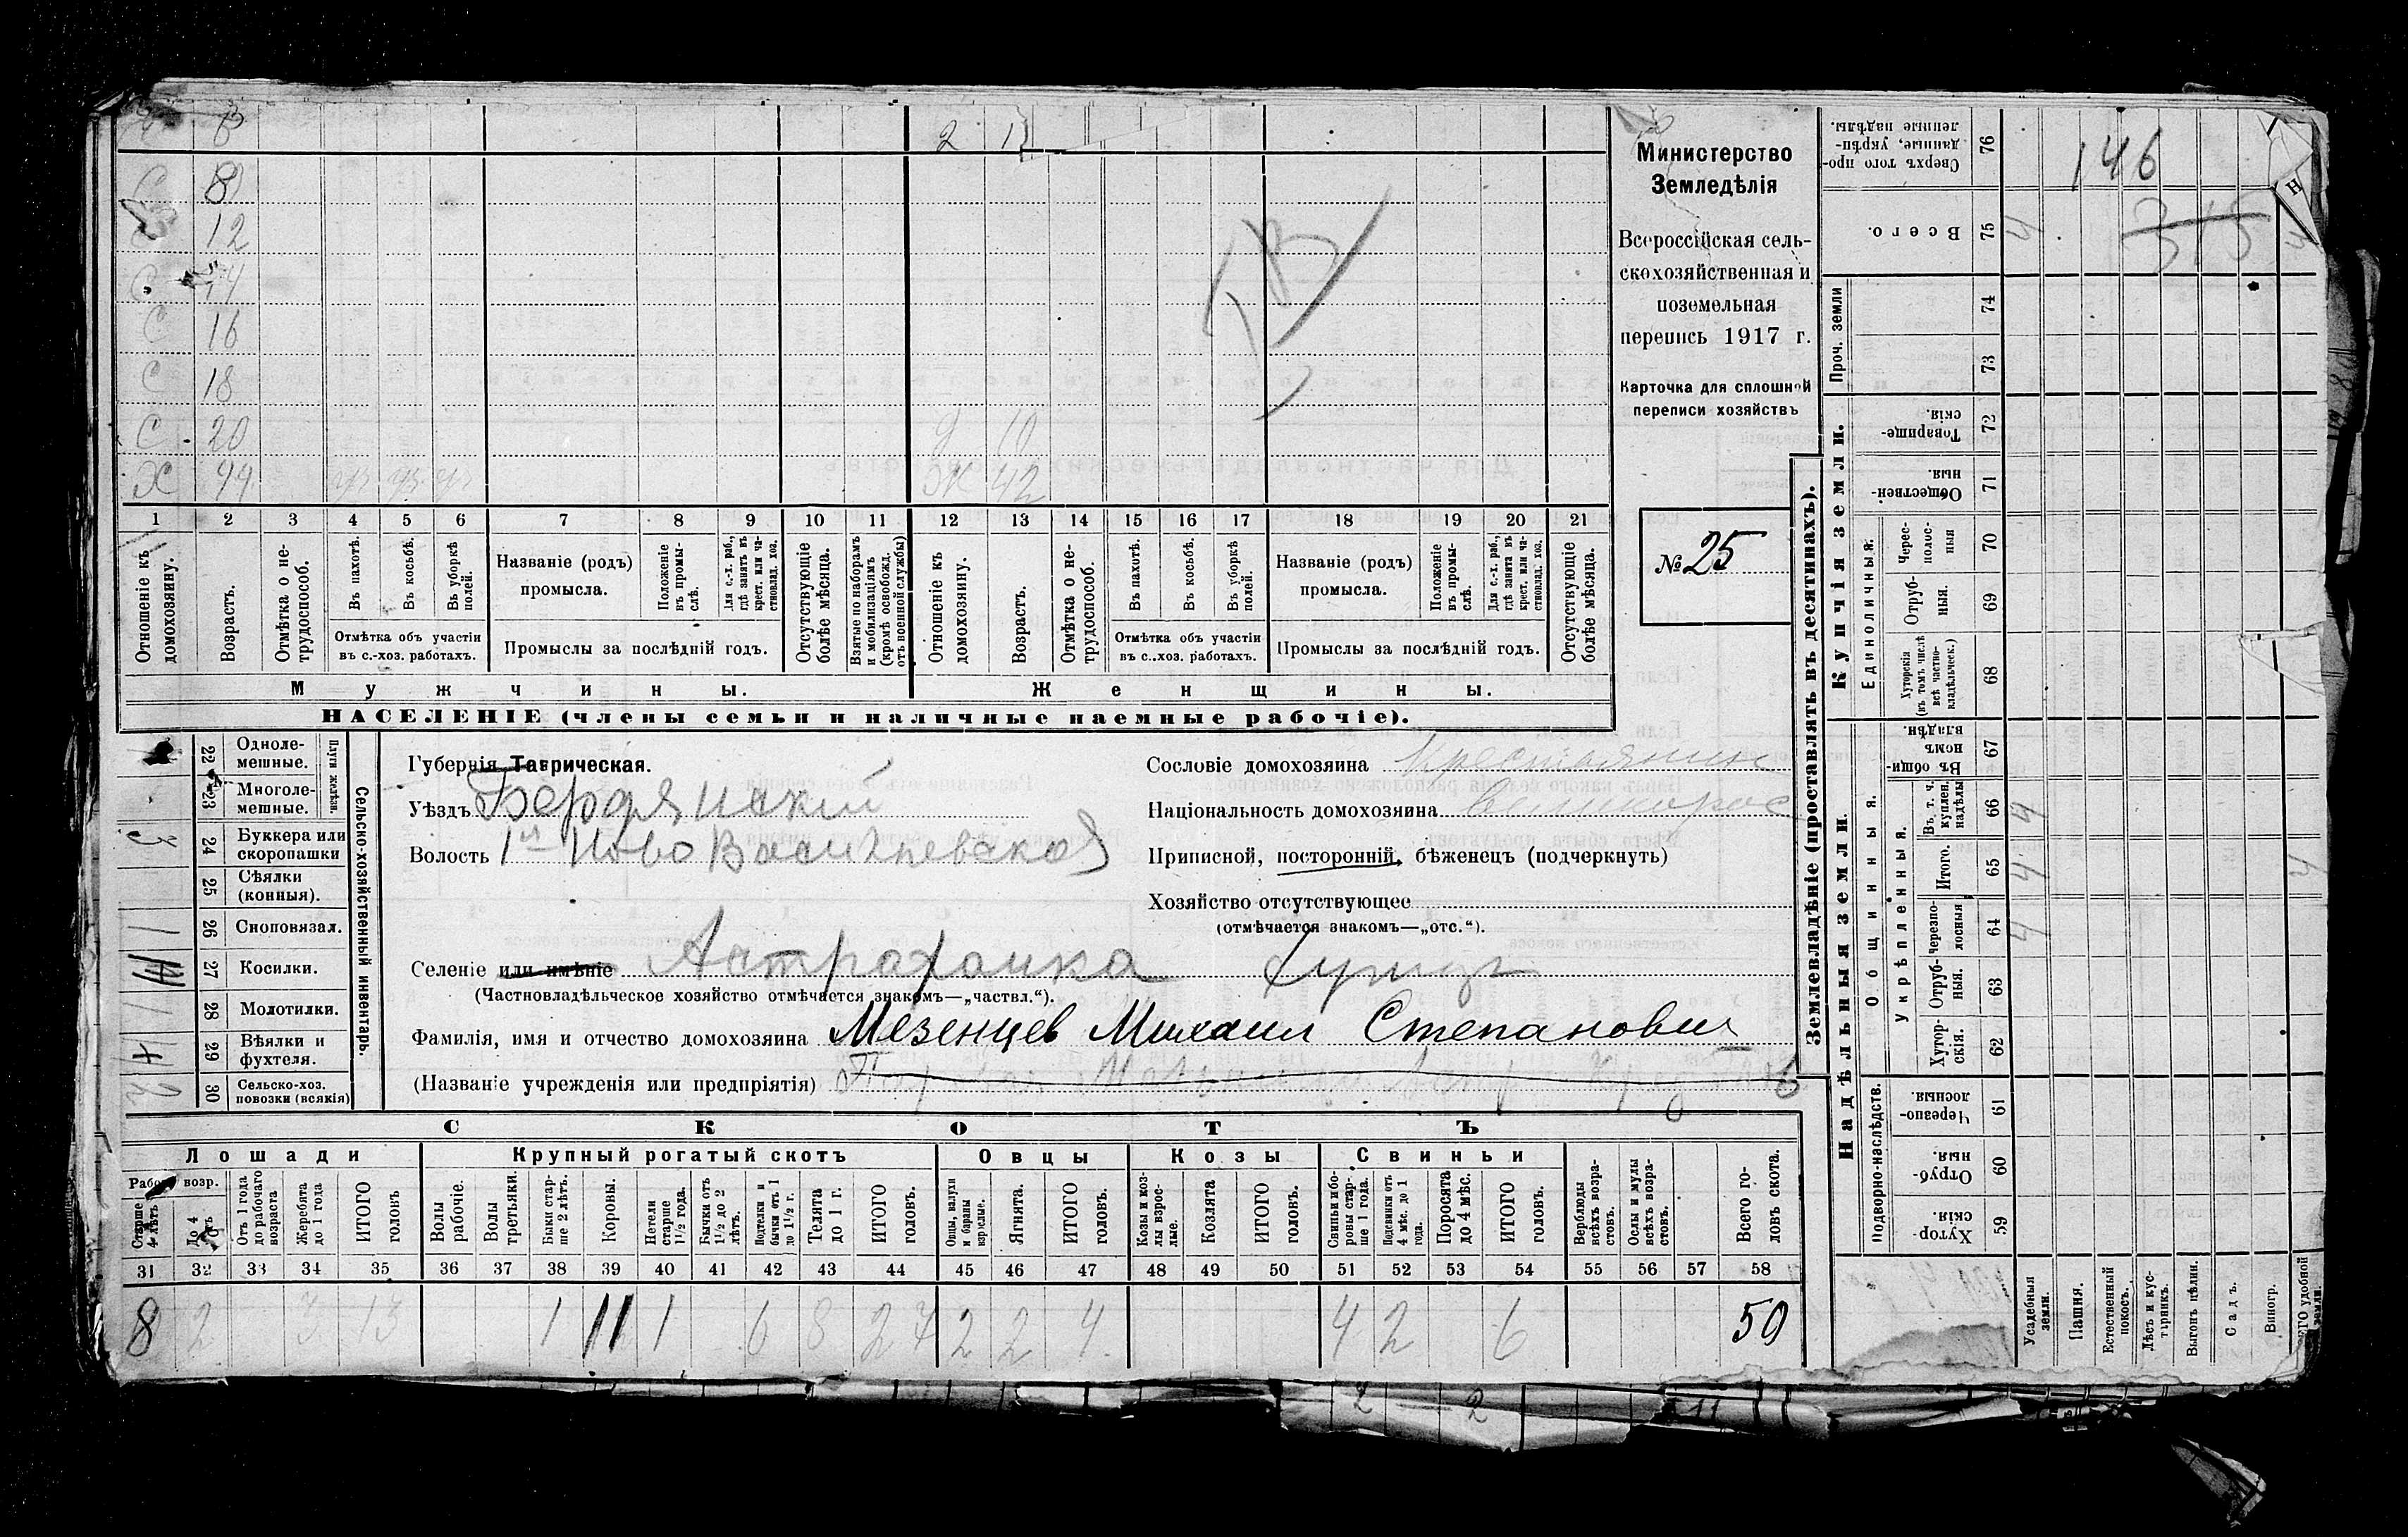 2 1
8
12
14
16
18
С 20 д 10
Х 44 Ж 42
1 2 3 4 5 6 7 8 9 10 11 12 13 14 15 16 17 18 19 20 21
Отношеніе къ домохозяину.
Возрастъ.
Отмѣтка о нетрудоспособ.
Въ пахотѣ.
Въ косьбѣ.
Въ уборкѣ полей.
Отмѣтка объ участіи въ с.-хоз. работахъ.
Названіе (родъ) промысла.
Положеніе въ промыслѣ.
Для с.-х. раб., гдѣ занятъ въ крест. или частновлад. хоз.
Промыслы за послѣдній годъ.
Отсутствующіе болѣе мѣсяца.
Взятые по наборамъ и мобилизаціямъ (кромѣ освобожд. отъ военной службы)
Отношеніе къ домохозяину.
Возрастъ.
Отмѣтка о нетрудоспособ.
Въ пахотѣ.
Въ косьбѣ.
Въ уборкѣ полей.
Отмѣтка объ участіи въ с.-хоз. работахъ.
Названіе (родъ) промысла.
Положеніе въ промыслѣ.
Для с.-х. раб., гдѣ занята въ крест. или частновлад. хоз.
Промыслы за послѣдній годъ.
Отсутствующіе болѣе мѣсяца.
Мужчины.
Женщины.
НАСЕЛЕНІЕ (члены семьи и наличные наемные рабочіе).
Министерство
Земледѣлія
Всероссійская сель-
скохозяйственная и
поземельная
перепись 1917 г.
Карточка для сплошной
переписи хозяйствъ
№ 25
22 Однолемешные.
23 Многолемешные.
Плуги желѣзн.
3 24 Буккера или скоропашки
25 Сѣялки (конныя).
1 26 Сноповязал.
27 Косилки.
1 28 Молотилки.
29 Вѣялки и фухтеля.
2 30 Сельско-хоз. повозки (всякія)
Сельско-хозяйственный инвентарь.
Губернія Таврическая.
Уѣздъ Бердянскій
Волость 1я Ново Васильевская
Селеніе или имѣніе Астраханка
(Частновладѣльческое хозяйство отмѣчается знакомъ—„частвл.“).
Фамилія, имя и отчество домохозяина Мезенцев Михаил Степанович
(Названіе учрежденія или предпріятія)
Сословіе домохозяина крестьянин
Національность домохозяина великорос
Приписной, посторонній, бѣженецъ (подчеркнуть)
Хозяйство отсутствующее
(отмѣчается знакомъ—„отс.“).
СКОТЪ
Лошади
Крупный рогатый скотъ
Овцы
Козы
Свиньи
Старше 4 лѣтъ
До 4 лѣтъ
Отъ 1 года до рабочаго возраста
Жеребята до 1 года
ИТОГО головъ
Волы рабочіе.
Волы третьяки.
Быки старше 2 лѣтъ.
Коровы.
Нетели старше 1½ года.
Бычки отъ 1½ до 2 лѣтъ.
Подтелки и бычки отъ 1 до 1½ г.
Телята до 1 г.
ИТОГО головъ.
Овцы, валухи и бараны взрослые.
Ягнята.
ИТОГО головъ.
Козы и козлы взрослые.
Козлята
ИТОГО головъ.
Свиньи и боровы старше 1 года.
Подсвинки отъ 4 мѣс. до 1 года.
Поросята до 4 мѣс.
ИТОГО головъ.
Верблюды всѣхъ возрастовъ.
Ослы и мулы всѣхъ возрастовъ.
Всего головъ скота.
31 32 33 34 35 36 37 38 39 40 41 42 43 44 45 46 47 48 49 50 51 52 53 54 55 56 57 58
8 2 3 13 1 11 1 6 8 27 2 2 4 4 2 6 50
Землевладѣніе (проставлять въ десятинахъ).
Купчія земли.
Надѣльныя земли.
Проч. земли
Единоличныя.
Общинныя.
Укрѣпленныя.
Подворно-наслѣдств.
76 Сверхъ того проданные, укрѣпленные надѣлы.
146
75 Всего. 4
74
73
72 Товарищескія.
71 Общественныя.
70 Чересполосныя
69 Отрубныя.
68 Хуторскія (въ томъ числѣ всѣ частновладѣльческ.)
67 Въ общинномъ владѣн.
66 Въ т. ч. куплен. надѣлы 4
65 Итого. 4
64 Черезполосныя 4
63 Отрубныя.
62 Хуторскія.
61 Черезполосныя.
60 Отрубныя.
59 Хуторскія.
Усадебныя земли.
Пашня.
Естественный покосъ.
Лѣсъ и кустарникъ.
Выгонъ цѣлин.
Садъ.
Виногр.
удобной земли.
2 2 11